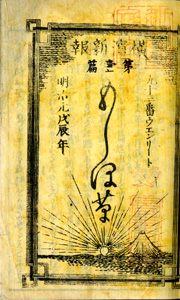 横濱新報
第壹篇
九十三番ウエンリート
もしほ草
明治元戊辰年